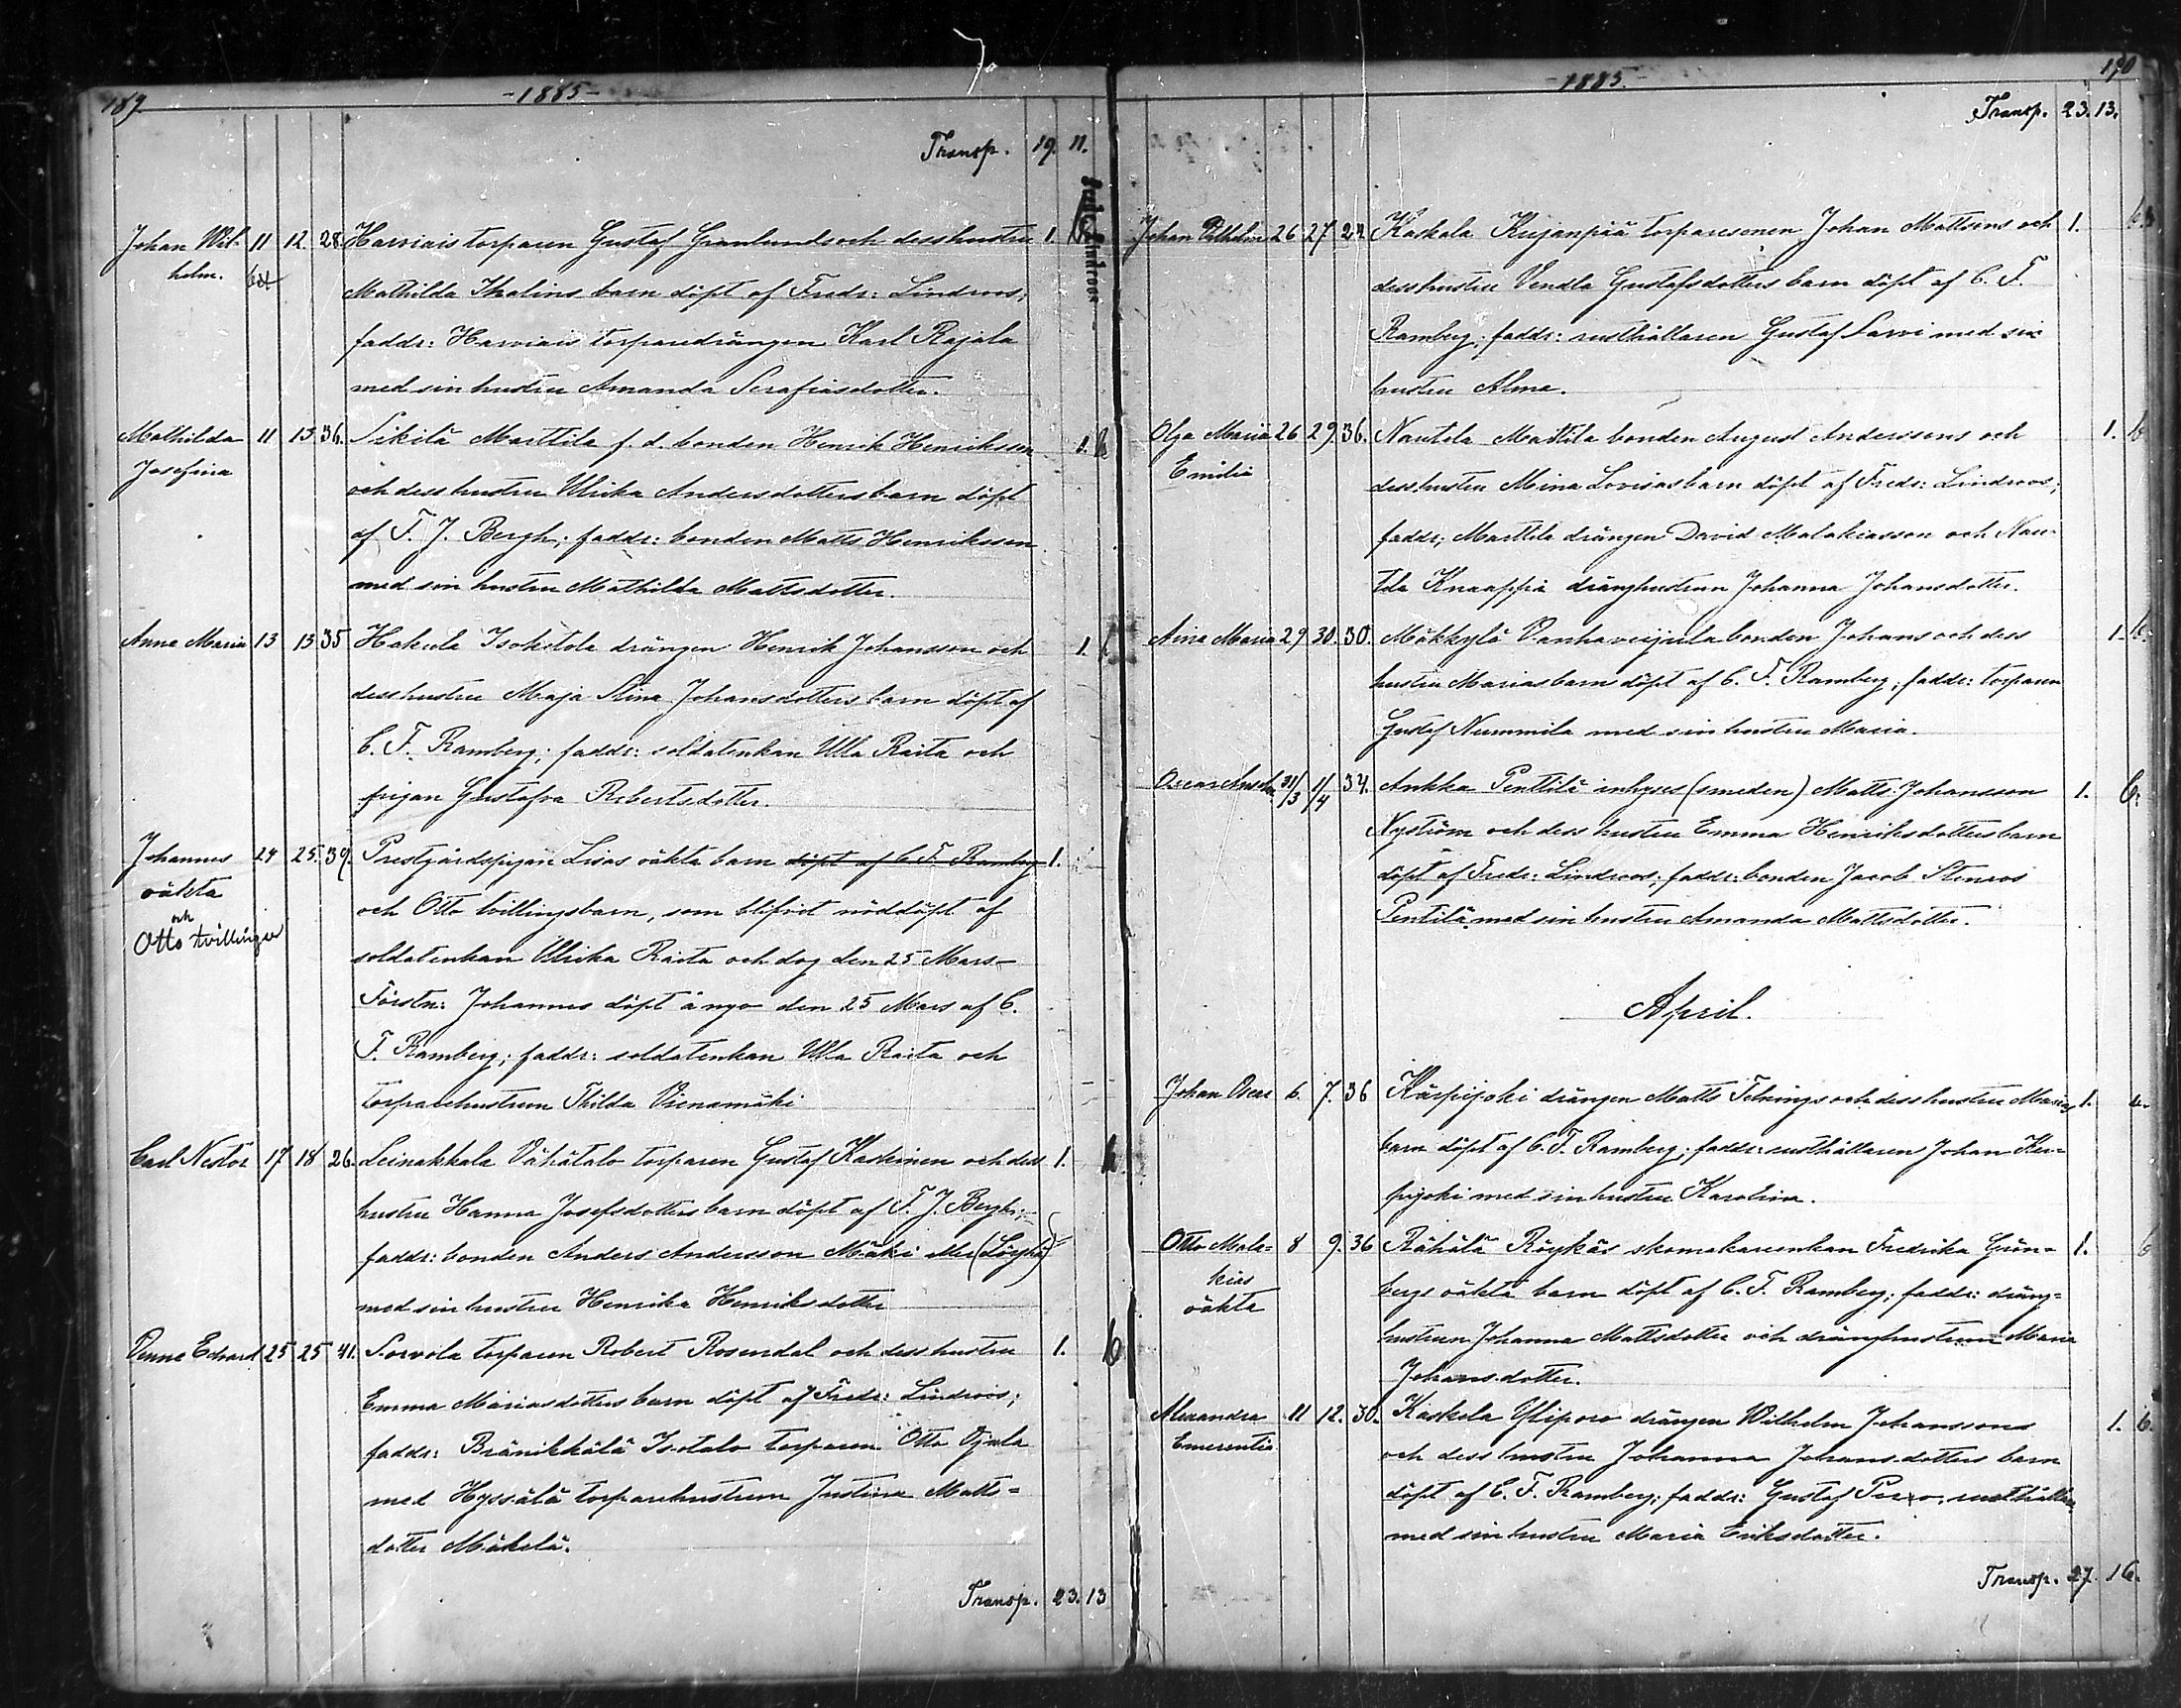 189.
-1885-
Transp. 19. 11.
Johan Wil- 11 12. 28. Harviais torparen Gustaf Granlunds och dess hustru 1.
helm.
Mathilda Thalins barn döpt af Fredr: Lindroos;
faddr: Harviais torparedrängen Karl Rajala
med sin hustru Amanda Serafiasdotter.
Mathilda 11 13 36. Sikilä Marttila f. d. bonden Henrik Henriksson 1.
Josefina
och dess hustru Ulrika Andersdotters barn döpt
af F. J. Bergh; faddr: bonden Matts Henriksson
med sin hustru Mathilda Mattsdotter.
Anna Maria 13 13 35 Hakula Isokotola drängen Henrik Johansson och 1.
dess hustru Maja Stina Johansdotters barn döpt af
C. F. Ramberg; faddr: soldatenkan Ulla Raita och
pigan Gustafva Robertsdotter.
Johannes 24 25. 39. Prestgårdspigan Lisas oäkta barn döpt af C. F. Ramberg 1.
oäkta
och
Otto tvillingar
och Otto tvillingsbarn, som blifvit nöddöpt af
soldatenkan Ulrika Raita och dog den 25 Mars-
Förstn: Johannes döpt å nyo den 25 Mars af C.
F. Ramberg; faddr: soldatenkan Ulla Raita och
torparehustrun Thilda Vienamäki
Carl Nestor 17 18 26. Leinakkala Vähätalo torparen Gustaf Kaskinen och dess 1.
hustru Hanna Josefsdotters barn döpt af F. J. Bergh;
faddr: bonden Anders Andersson Mäki eller (Löyhä)
med sin hustru Henrika Henriksdotter
Edvard 25 25 41. Sorvola torparen Robert Rosendal och dess hustru 1. b
Emma Mariasdotters barn döpt af Fredr: Lindroos;
faddr: Bränikkälä Isotalo torparen Otto Ojala
med Hyssälä torparehustrun Justina Matts=
dotter Mäkelä.
Transp. 23. 13
190
-1885.-
Transp. 23. 13.
Johan Vilhelm 26 27 24. Kaskala Kujanpää torparesonen Johan Mattsons och 1.
dess hustru Vendla Gustafsdotters barn döpt af C. F.
Ramberg; faddr: rusthållaren Gustaf Sarvi med sin
hustru Alma.
Olga Maria 26 29. 36. Nautela Mattila bonden August Anderssons och 1. b
Emilia
dess hustru Mina Lovisas barn döpt af Fredr: Lindroos;
faddr; Marttila drängen David Malakiasson och Nau-
tela Knaappia dränghustrun Johanna Johansdotter.
Aina Maria 29 30. 30. Mäkkylä Vanhaveijula bonden Johans och dess 1. b.
hustru Marias barn döpt af C. F. Ramberg; faddr: torparen
Gustaf Nummila med sin hustru Maria.
Oscar 31/3 1/4 34. Ankka Penttilä inhyses (smeden) Matts Johansson 1. b.
Nyström och dess hustru Emma Henriksdotters barn
döpt af Fredr: Lindroos; faddr: bonden Jacob Stenros
Pentilä med sin hustru Amanda Mattsdotter.
April.
Johan Oscar 6. 7. 36 Kärpijoki drängen Matts Felnings och dess hustru Marias 1.
barn döpt af C. F. Ramberg; faddr: rusthållaren Johan Ker-
pijoki med sin hustru Karolina.
Otto Mala= 8 9. 36 Rähälä Röykäs skomakareenkan Fredrika Grön= 1. b
kias
oäkta
bergs oäkta barn döpt af C. F. Ramberg; faddr: dräng=
hustrun Johanna Mattsdotter och dränghustrun Maria
Johansdotter.
Alexandra 11 12. 30. Kaskela Yliporo drängen Wilhelm Johanssons 1. b.
Emerentia
och dess hustru Johanna Johansdotters barn
döpt af C. F. Ramberg; faddr: Gustaf Poro, rusthållare
med sin hustru Maria Eriksdotter.
Transp. 27. 16.